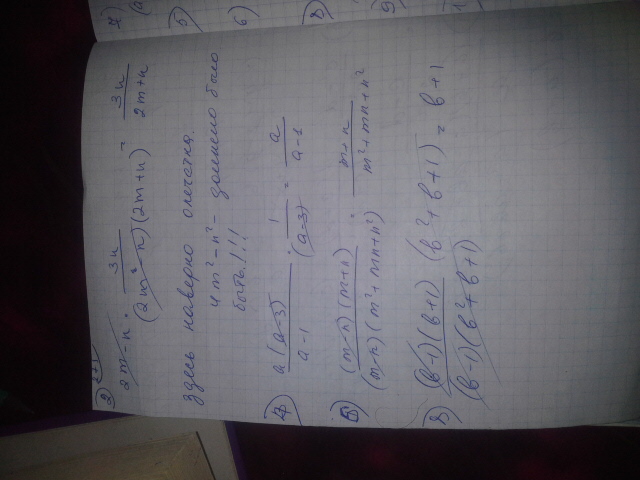 2) 2m-n · 3n / (2m-n)(2m+n) = 3n / 2m+n
здесь наверно опечатка
4m²-n² - должно было
быть!!!
4) a(a-3) / a-1 · 1 / (a-3) = a / a-1
6) (m-n)(m+n) / (m-n)(m²+mn+n²) = m+n / m²+mn+n²
8) (b-1)(b+1) / (b-1)(b²+b+1) (b²+b+1) = b+1
5)
6)
8)
9)